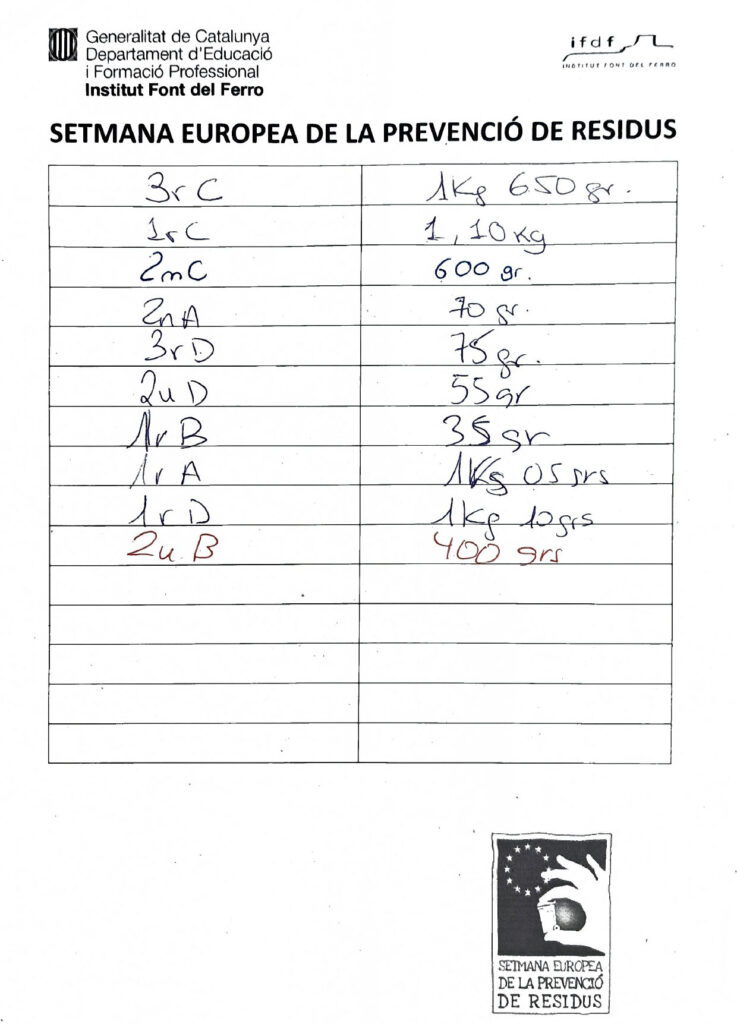 Generalitat de Catalunya
Departament d'Educació
i Formació Professional
Institut Font del Ferro
ifdf
INSTITUT FONT DEL FERRO
SETMANA EUROPEA DE LA PREVENCIÓ DE RESIDUS
3r C 1Kg 650 gr.
1r C 1,10 Kg
2m C 600 gr.
2n A 70 gr.
3r D 75 gr.
2u D 55 gr
1r B 35 gr
1r A 1Kg 05 grs
1r D 1Kg 10 grs
2u B 400 grs
SETMANA EUROPEA
DE LA PREVENCIÓ
DE RESIDUS